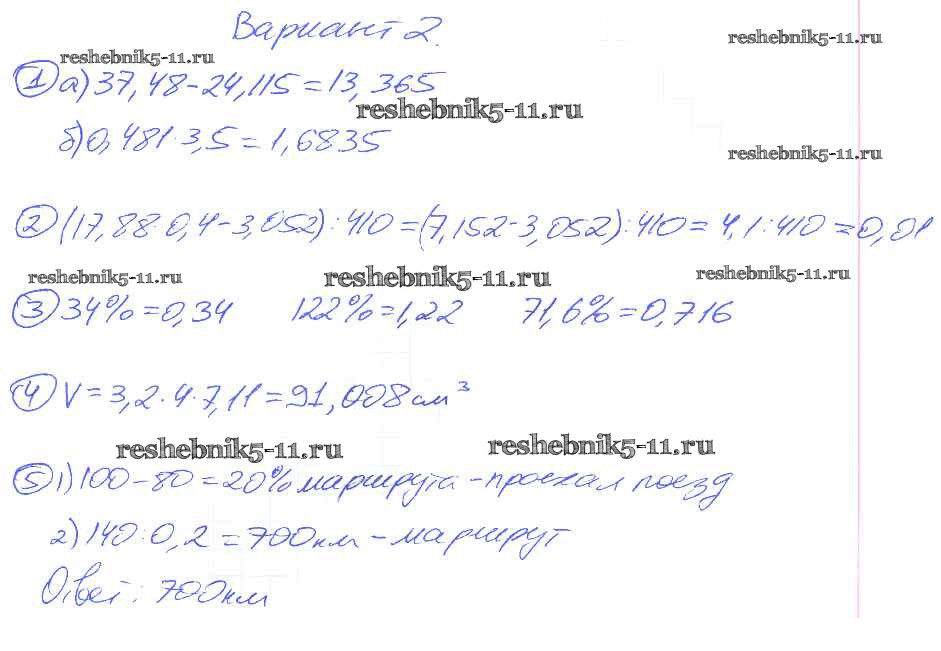 Вариант 2.
reshebnik5-11.ru
reshebnik5-11.ru
1 а) 37,48-24,115=13,365
reshebnik5-11.ru
б) 0,481·3,5=1,6835
reshebnik5-11.ru
2 (17,88·0,4-3,052):410=(7,152-3,052):410=4,1:410=0,01
reshebnik5-11.ru
reshebnik5-11.ru
reshebnik5-11.ru
3 34%=0,34 122%=1,22 71,6%=0,716
4 V=3,2·4·7,11=91,008см³
reshebnik5-11.ru
reshebnik5-11.ru
5 1) 100-80=20% маршрута - проехал поезд
2) 140:0,2=700км - маршрут
Ответ: 700км